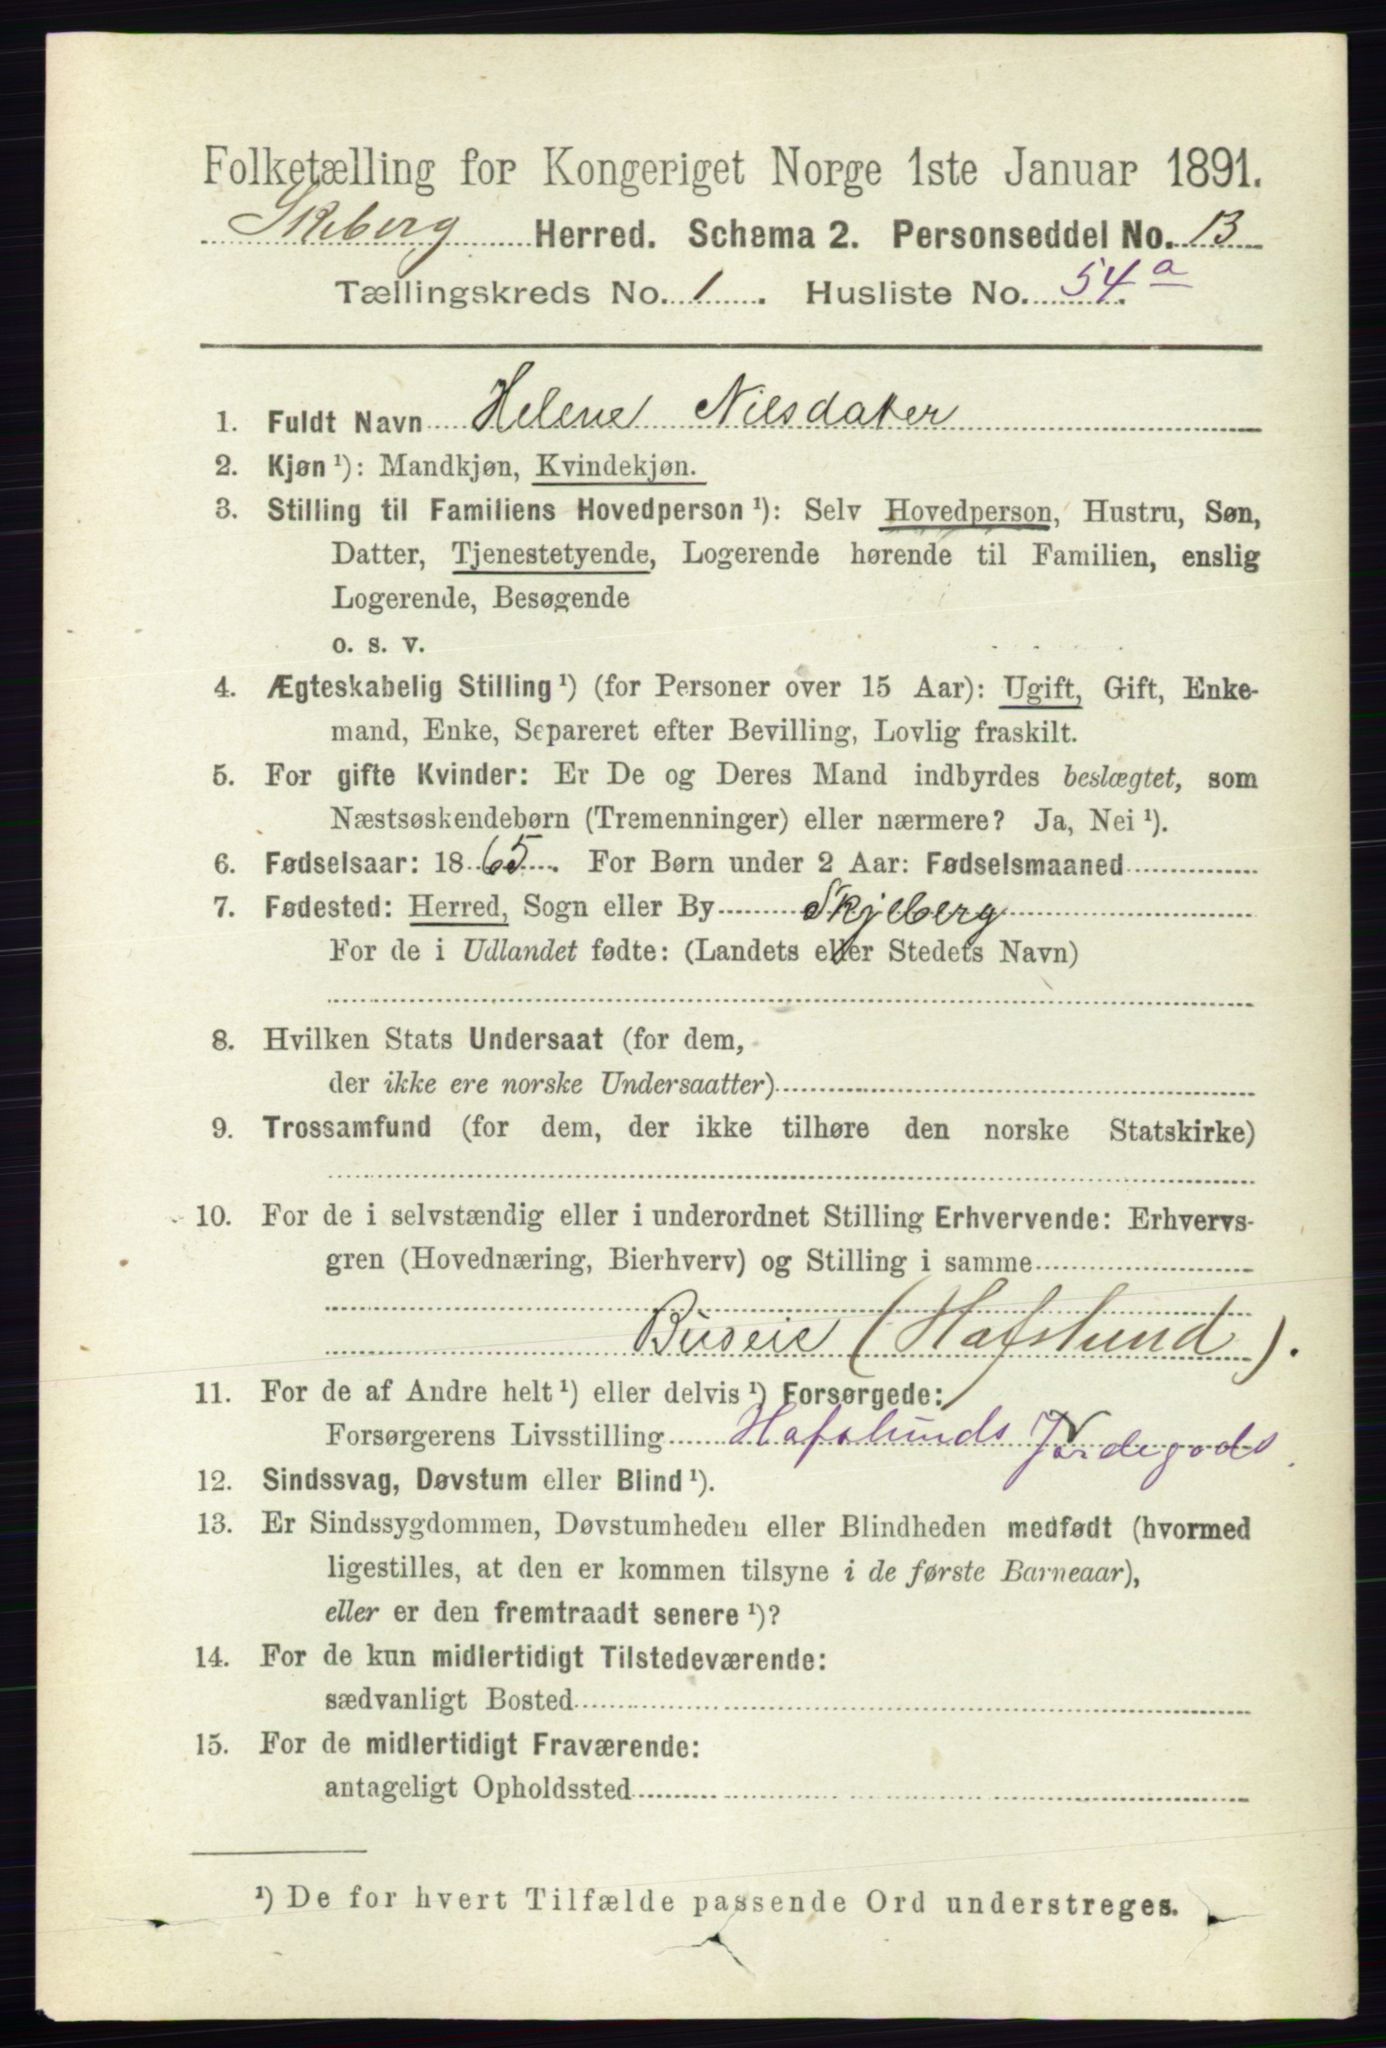 Folketælling for Kongeriget Norge 1ste Januar 1891.
Skeberg Herred. Schema 2. Personseddel No. 13
Tællingskreds No. 1. Husliste No. 54 a
1. Fuldt Navn Helene Nilsdatter
2. Kjøn ¹): Mandkjøn, Kvindekjøn.
3. Stilling til Familiens Hovedperson ¹): Selv Hovedperson, Hustru, Søn,
Datter, Tjenestetyende, Logerende hørende til Familien, enslig
Logerende, Besøgende
o. s. v.
4. Ægteskabelig Stilling ¹) (for Personer over 15 Aar): Ugift, Gift, Enke-
mand, Enke, Separeret efter Bevilling, Lovlig fraskilt.
5. For gifte Kvinder: Er De og Deres Mand indbyrdes beslægtet, som
Næstsøskendebørn (Tremenninger) eller nærmere? Ja, Nei ¹).
6. Fødselsaar: 1865. For Børn under 2 Aar: Fødselsmaaned
7. Fødested: Herred, Sogn eller By Skjeberg
For de i Udlandet fødte: (Landets eller Stedets Navn)
8. Hvilken Stats Undersaat (for dem,
der ikke ere norske Undersaatter)
9. Trossamfund (for dem, der ikke tilhøre den norske Statskirke)
10. For de i selvstændig eller i underordnet Stilling Erhvervende: Erhvervs-
gren (Hovednæring, Bierhverv) og Stilling i samme
(Hafslund).
11. For de af Andre helt ¹) eller delvis ¹) Forsørgede:
Forsørgerens Livsstilling Hafslunds Jordegods
12. Sindssvag, Døvstum eller Blind ¹).
13. Er Sindssygdommen, Døvstumheden eller Blindheden medfødt (hvormed
ligestilles, at den er kommen tilsyne i de første Barneaar),
eller er den fremtraadt senere ¹)?
14. For de kun midlertidigt Tilstedeværende:
sædvanligt Bosted
15. For de midlertidigt Fraværende:
antageligt Opholdssted
¹) De for hvert Tilfælde passende Ord understreges.